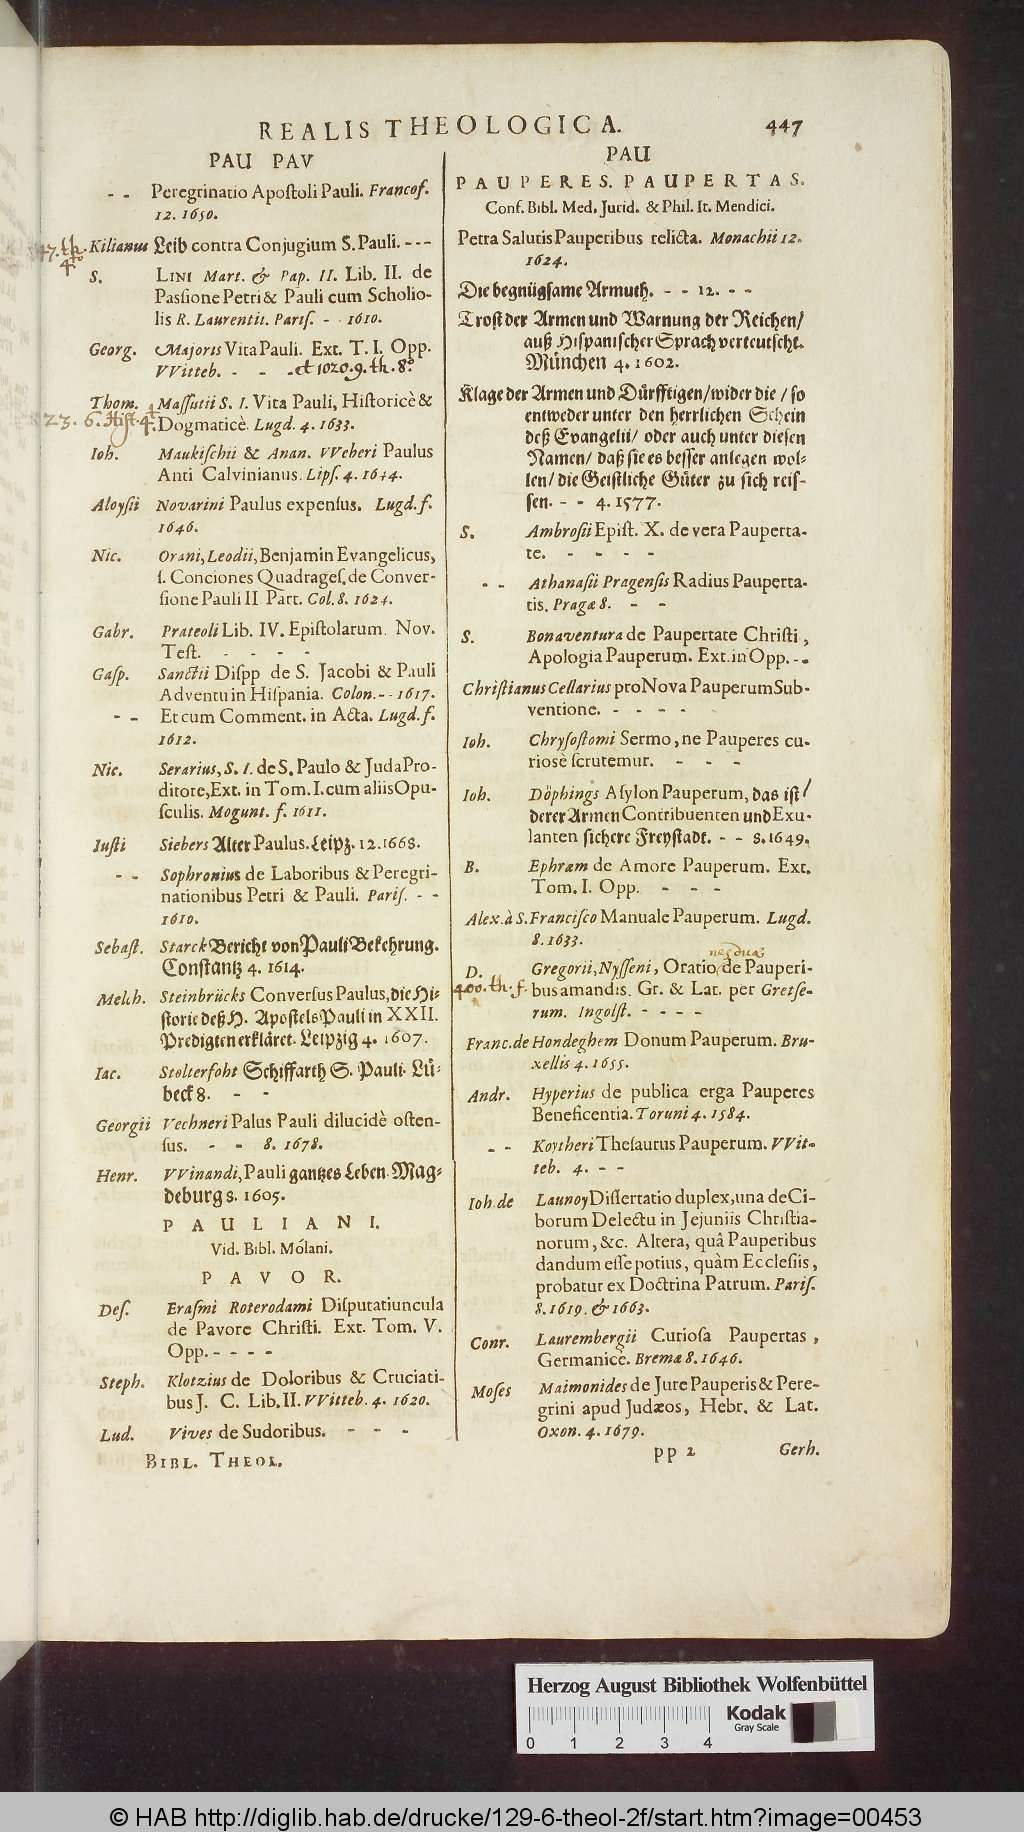 REALIS THEOLOGICA. 447
PAU PAV
- - Peregrinatio Apoſtoli Pauli. Francof.
12. 1650.
47. th. 4to
Kilianus Leib contra Conjugium S. Pauli. - - -
S. LINI Mart. & Pap. II. Lib. II. de
Paſsione Petri & Pauli cum Scholio-
lis R. Laurentii. Pariſ. - - 1610.
Georg. Majoris Vita Pauli. Ext. T. I. Opp.
VVitteb. - - - et 1020. 9. th. 8º
Thom. Maſſutii S. I. Vita Pauli, Hiſtoricè &
23. 6. Hiſt. 4t. Dogmaticè. Lugd. 4. 1633.
Ioh. Maukiſchii & Anan. VVeberi Paulus
Anti Calvinianus. Lipſ. 4. 1644.
Aloyſii Novarini Paulus expenſus. Lugd. f.
1646.
Nic. Orani, Leodii, Benjamin Evangelicus,
ſ. Conciones Quadrageſ. de Conver-
ſione Pauli II Part. Col. 8. 1624.
Gabr. Prateoli Lib. IV. Epiſtolarum Nov.
Teſt. - - - -
Gaſp. Sanctii Diſpp de S. Jacobi & Pauli
Adventu in Hiſpania. Colon. - - 1617.
- - Et cum Comment. in Acta. Lugd. f.
1612.
Nic. Serarius, S. I. de S. Paulo & Juda Pro-
ditore, Ext. in Tom. I. cum aliis Opu-
ſculis. Mogunt. f. 1611.
Iuſti Siebers Alter Paulus. Leipz. 12. 1668.
- - Sophronius de Laboribus & Peregri-
nationibus Petri & Pauli. Pariſ. - -
1610.
Sebaſt. Starck Bericht von Pauli Bekehrung.
Conſtantz 4. 1614.
Melch. Steinbrücks Converſus Paulus, die Hi-
ſtorie deß H. Apoſtels Pauli in XXII.
Predigten erkläret. Leipzig 4. 1607.
Iac. Stolterfoht Schiffarth S. Pauli. Lü-
beck 8. - -
Georgii Vechneri Palus Pauli dilucidè oſten-
ſus. - - 8. 1678.
Henr. VVinandi, Pauli gantzes Leben. Mag-
deburg 8. 1605.
PAULIANI.
Vid. Bibl. Mólani.
PAVOR.
Deſ. Eraſmi Roterodami Diſputatiuncula
de Pavore Chriſti. Ext. Tom. V.
Opp. - - - -
Steph. Klotzius de Doloribus & Cruciati-
bus J. C. Lib. II. VVitteb. 4. 1620.
Lud. Vives de Sudoribus. - - -
BIBL. THEOL.
PAU
PAUPERES. PAUPERTAS.
Conf. Bibl. Med. Jurid. & Phil. It. Mendici.
Petra Salutis Pauperibus relicta. Monachii 12.
1624.
Die begnügſame Armuth. - - 12. - -
Troſt der Armen und Warnung der Reichen/
auß Hiſpaniſcher Sprach verteutſcht.
München 4. 1602.
Klage der Armen und Dürfftigen/ wider die / ſo
entweder unter den herrlichen Schein
deß Evangelii/ oder auch unter dieſen
Namen/ daß ſie es beſſer anlegen wol-
len/ die Geiſtliche Güter zu ſich reiſ-
ſen. - - 4. 1577.
S. Ambroſii Epiſt. X. de vera Pauperta-
te. - - - -
- - Athanaſii Pragenſis Radius Pauperta-
tis. Pragæ 8. - -
S. Bonaventura de Paupertate Chriſti,
Apologia Pauperum. Ext. in Opp. - -
Chriſtianus Cellarius pro Nova Pauperum Sub-
ventione. - - - -
Ioh. Chryſoſtomi Sermo, ne Pauperes cu-
riosè ſcrutemur. - - -
Ioh. Döphings Aſylon Pauperum, das iſt/
derer Armen Contribuenten und Exu-
lanten ſichere Freyſtadt. - - 8. 1649.
B. Ephræm de Amore Pauperum. Ext.
Tom. I. Opp. - - -
Alex. à S. Franciſco Manuale Pauperum. Lugd.
8. 1633.
D. Gregorii, Nyſſeni, Oratio de Pauperi-
400. th. f. bus amandis. Gr. & Lat. per Gretſe-
rum. Ingolſt. - - - -
Franc. de Hondeghem Donum Pauperum. Bru-
xellis 4. 1655.
Andr. Hyperius de publica erga Pauperes
Beneficentia. Toruni 4. 1584.
- - Koytheri Theſaurus Pauperum. VVit-
teb. 4. - -
Ioh. de Launoy Diſſertatio duplex, una de Ci-
borum Delectu in Jejuniis Chriſtia-
norum, &c. Altera, quâ Pauperibus
dandum eſſe potius, quàm Eccleſiis,
probatur ex Doctrina Patrum. Pariſ.
8. 1619. & 1663.
Conr. Laurembergii Curioſa Paupertas,
Germanicè. Bremæ 8. 1646.
Moſes Maimonides de Jure Pauperis & Pere-
grini apud Judæos, Hebr. & Lat.
Oxon. 4. 1679.
pp 2 Gerh.
Herzog August Bibliothek Wolfenbüttel
Kodak
Gray Scale
0 1 2 3 4
© HAB http://diglib.hab.de/drucke/129-6-theol-2f/start.htm?image=00453